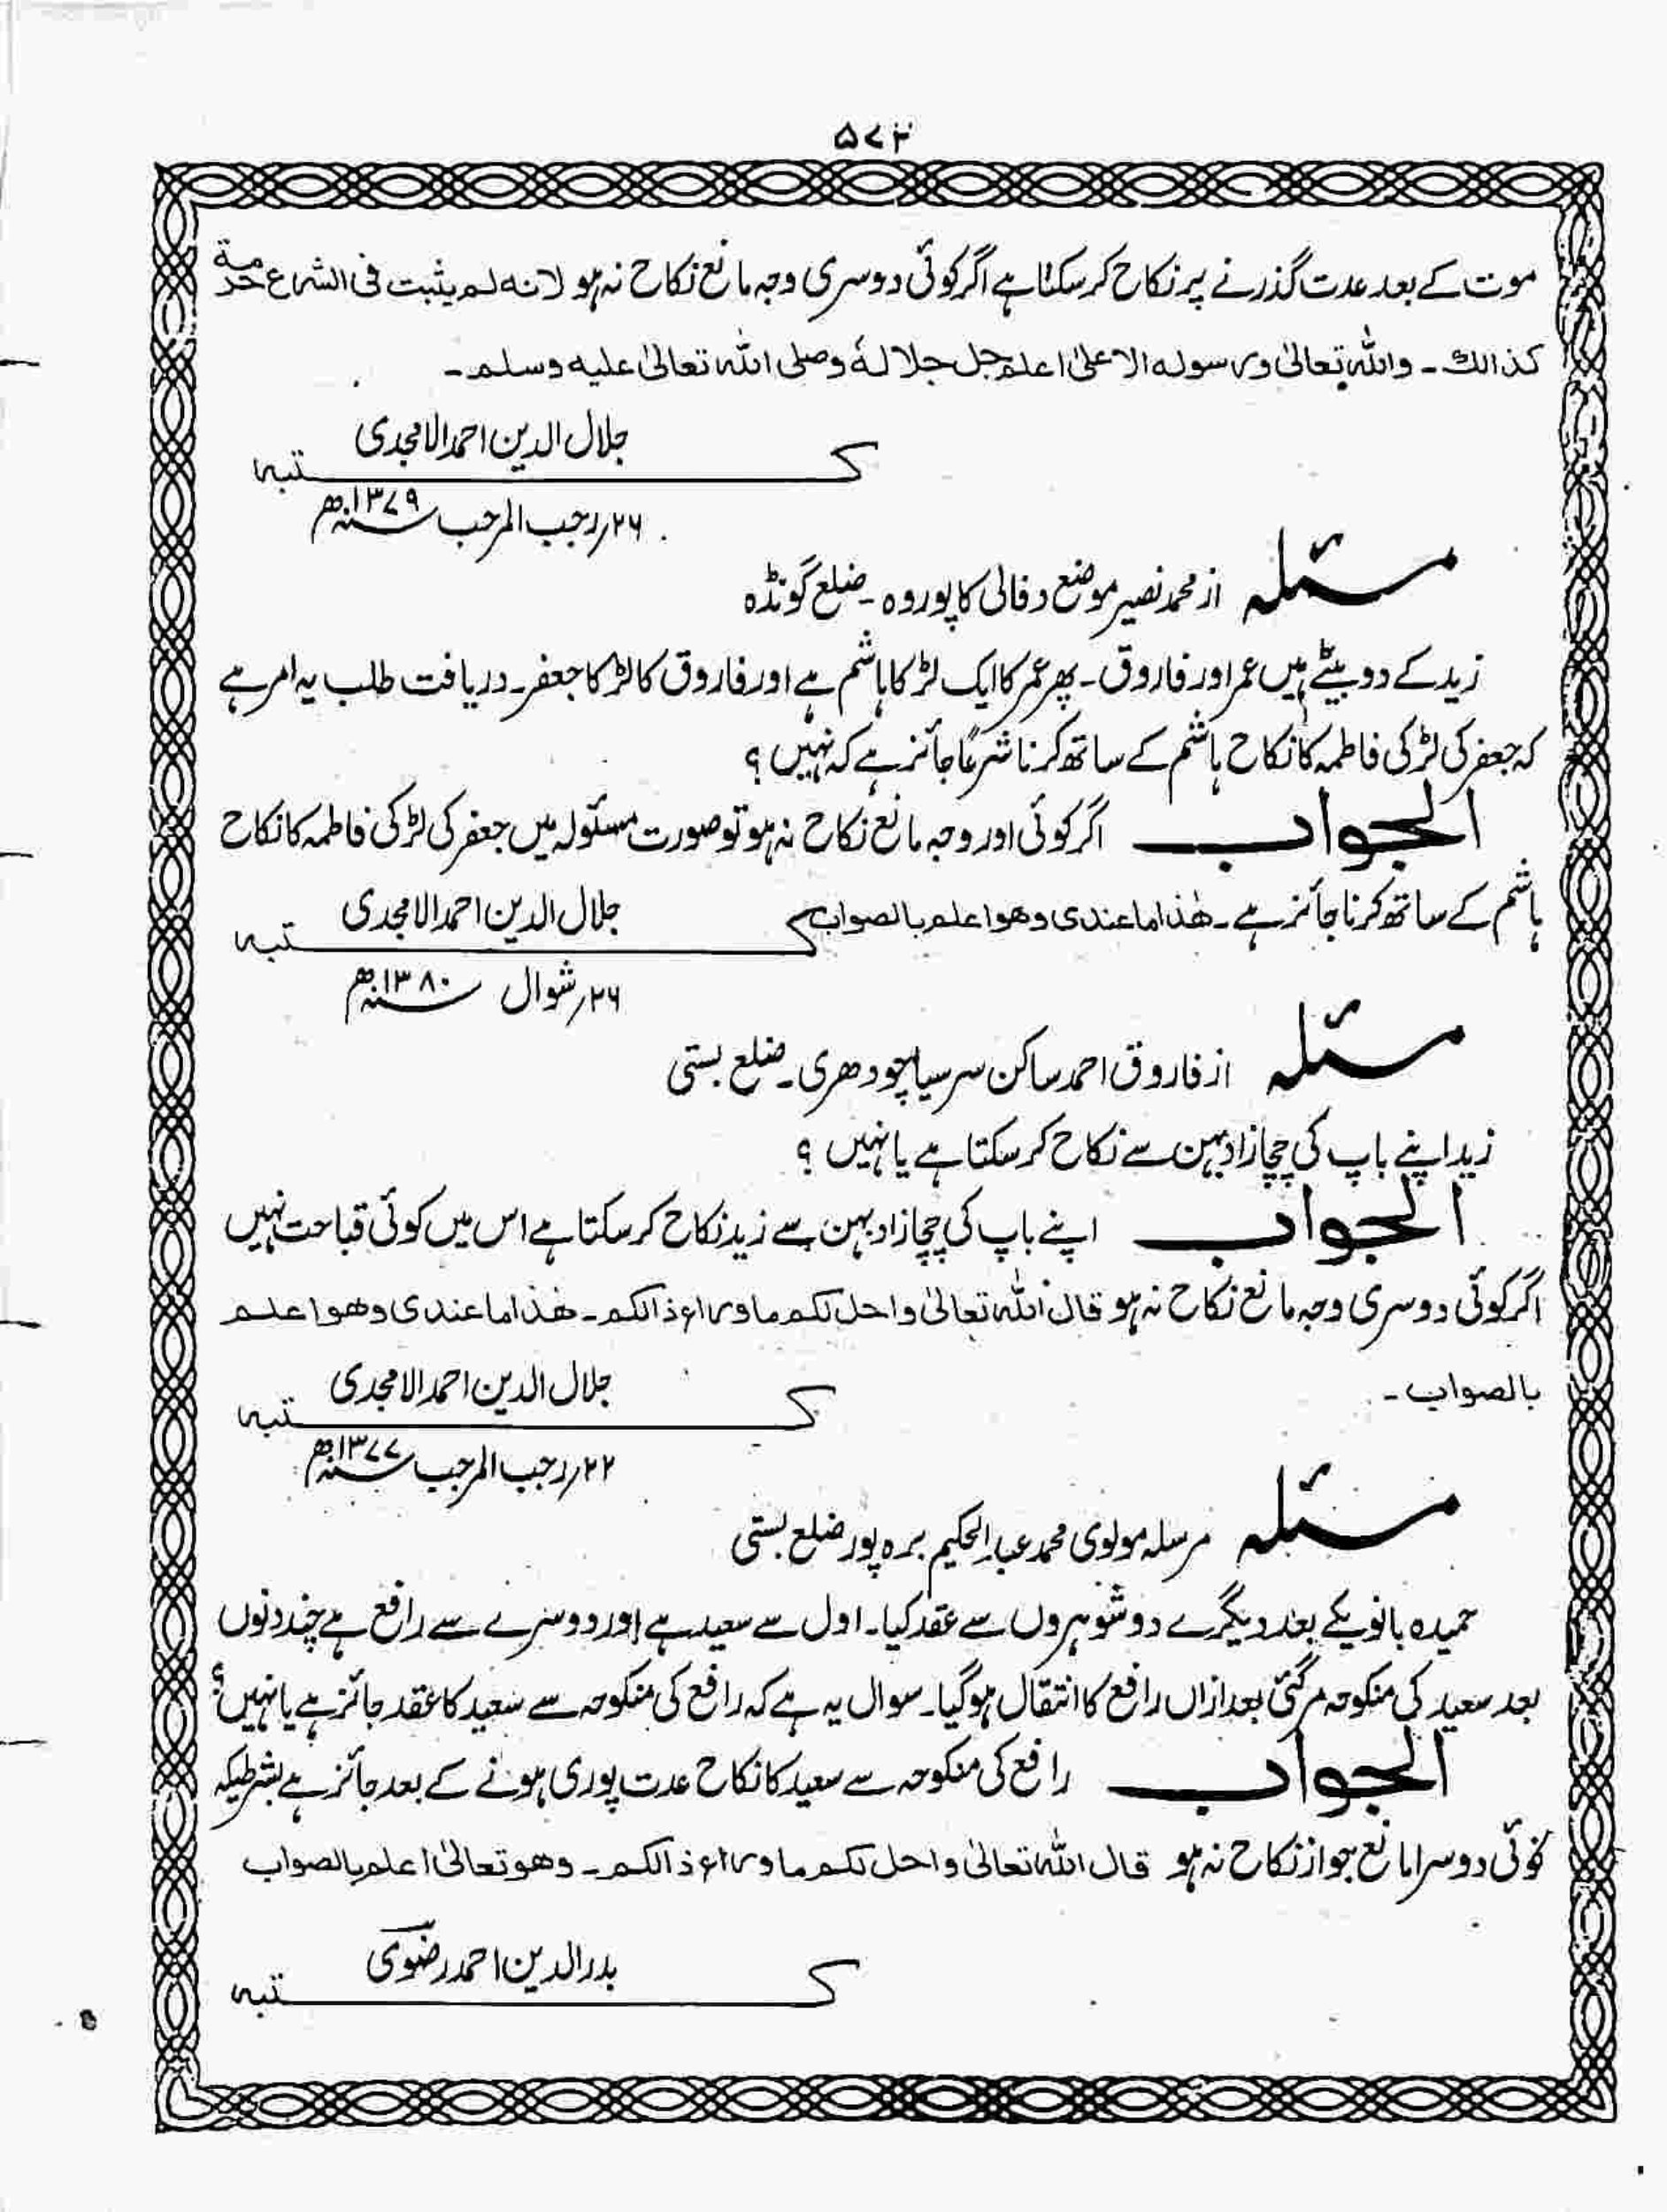 ۵۷۲
موت کے بعد عدت گذرنے پر نکاح کر سکتا ہے اگر کوئی دوسری وجہ مانع نکاح نہ ہو لانہ لم یثبت فی الشرع حرمة
کذالك ۔ واللہ تعالیٰ ورسولہ الاعلیٰ اعلم جل جلالہٗ وصلی اللہ تعالیٰ علیہ وسلم ۔
جلال الدین احمد الامجدی
کتبہ
۲۶؍رجب المرجب ۱۳۷۹ھ
مسئلہ از محمد نصیر موضع دفالی کا پوروہ ۔ ضلع گونڈہ
زید کے دو بیٹے ہیں عمر اور فاروق ۔ پھر عمر کا ایک لڑکا ہاشم ہے اور فاروق کا لڑکا جعفر ۔ دریافت طلب یہ امر ہے
کہ جعفر کی لڑکی فاطمہ کا نکاح ہاشم کے ساتھ کرنا شرعًا جائز ہے کہ نہیں ؟
الجواب اگر کوئی اور وجہ مانع نکاح نہ ہو تو صورت مسئولہ میں جعفر کی لڑکی فاطمہ کا نکاح
ہاشم کے ساتھ کرنا جائز ہے ۔ ھٰذا ما عندی وھو اعلم بالصواب
جلال الدین احمد الامجدی
کتبہ
۲۶؍شوال ۱۳۸۰ھ
مسئلہ از فاروق احمد ساکن سرسیا چودھری ۔ ضلع بستی
زید اپنے باپ کی چچازاد بہن سے نکاح کر سکتا ہے یا نہیں ؟
الجواب اپنے باپ کی چچازاد بہن سے زید نکاح کر سکتا ہے اس میں کوئی قباحت نہیں
اگر کوئی دوسری وجہ مانع نکاح نہ ہو قال اللہ تعالیٰ واحل لکم ما وراء ذالکم ۔ ھٰذا ما عندی وھو اعلم
بالصواب ۔
جلال الدین احمد الامجدی
کتبہ
۲۲؍رجب المرجب ۱۳۷۷ھ
مسئلہ مرسلہ مولوی محمد عبدالحکیم بره پور ضلع بستی
حمیدہ بانو یکے بعد دیگرے دو شوہروں سے عقد کیا ۔ اول سے سعید ہے اور دوسرے سے رافع ہے چند دنوں
بعد سعید کی منکوحہ مر گئی بعد ازاں رافع کا انتقال ہو گیا ۔ سوال یہ ہے کہ رافع کی منکوحہ سے سعید کا عقد جائز ہے یا نہیں ؟
الجواب رافع کی منکوحہ سے سعید کا نکاح عدت پوری ہونے کے بعد جائز ہے بشرطیکہ
کوئی دوسرا مانع جواز نکاح نہ ہو قال اللہ تعالیٰ واحل لکم ما وراء ذالکم ۔ وھو تعالیٰ اعلم بالصواب
بدر الدین احمد رضوی
کتبہ